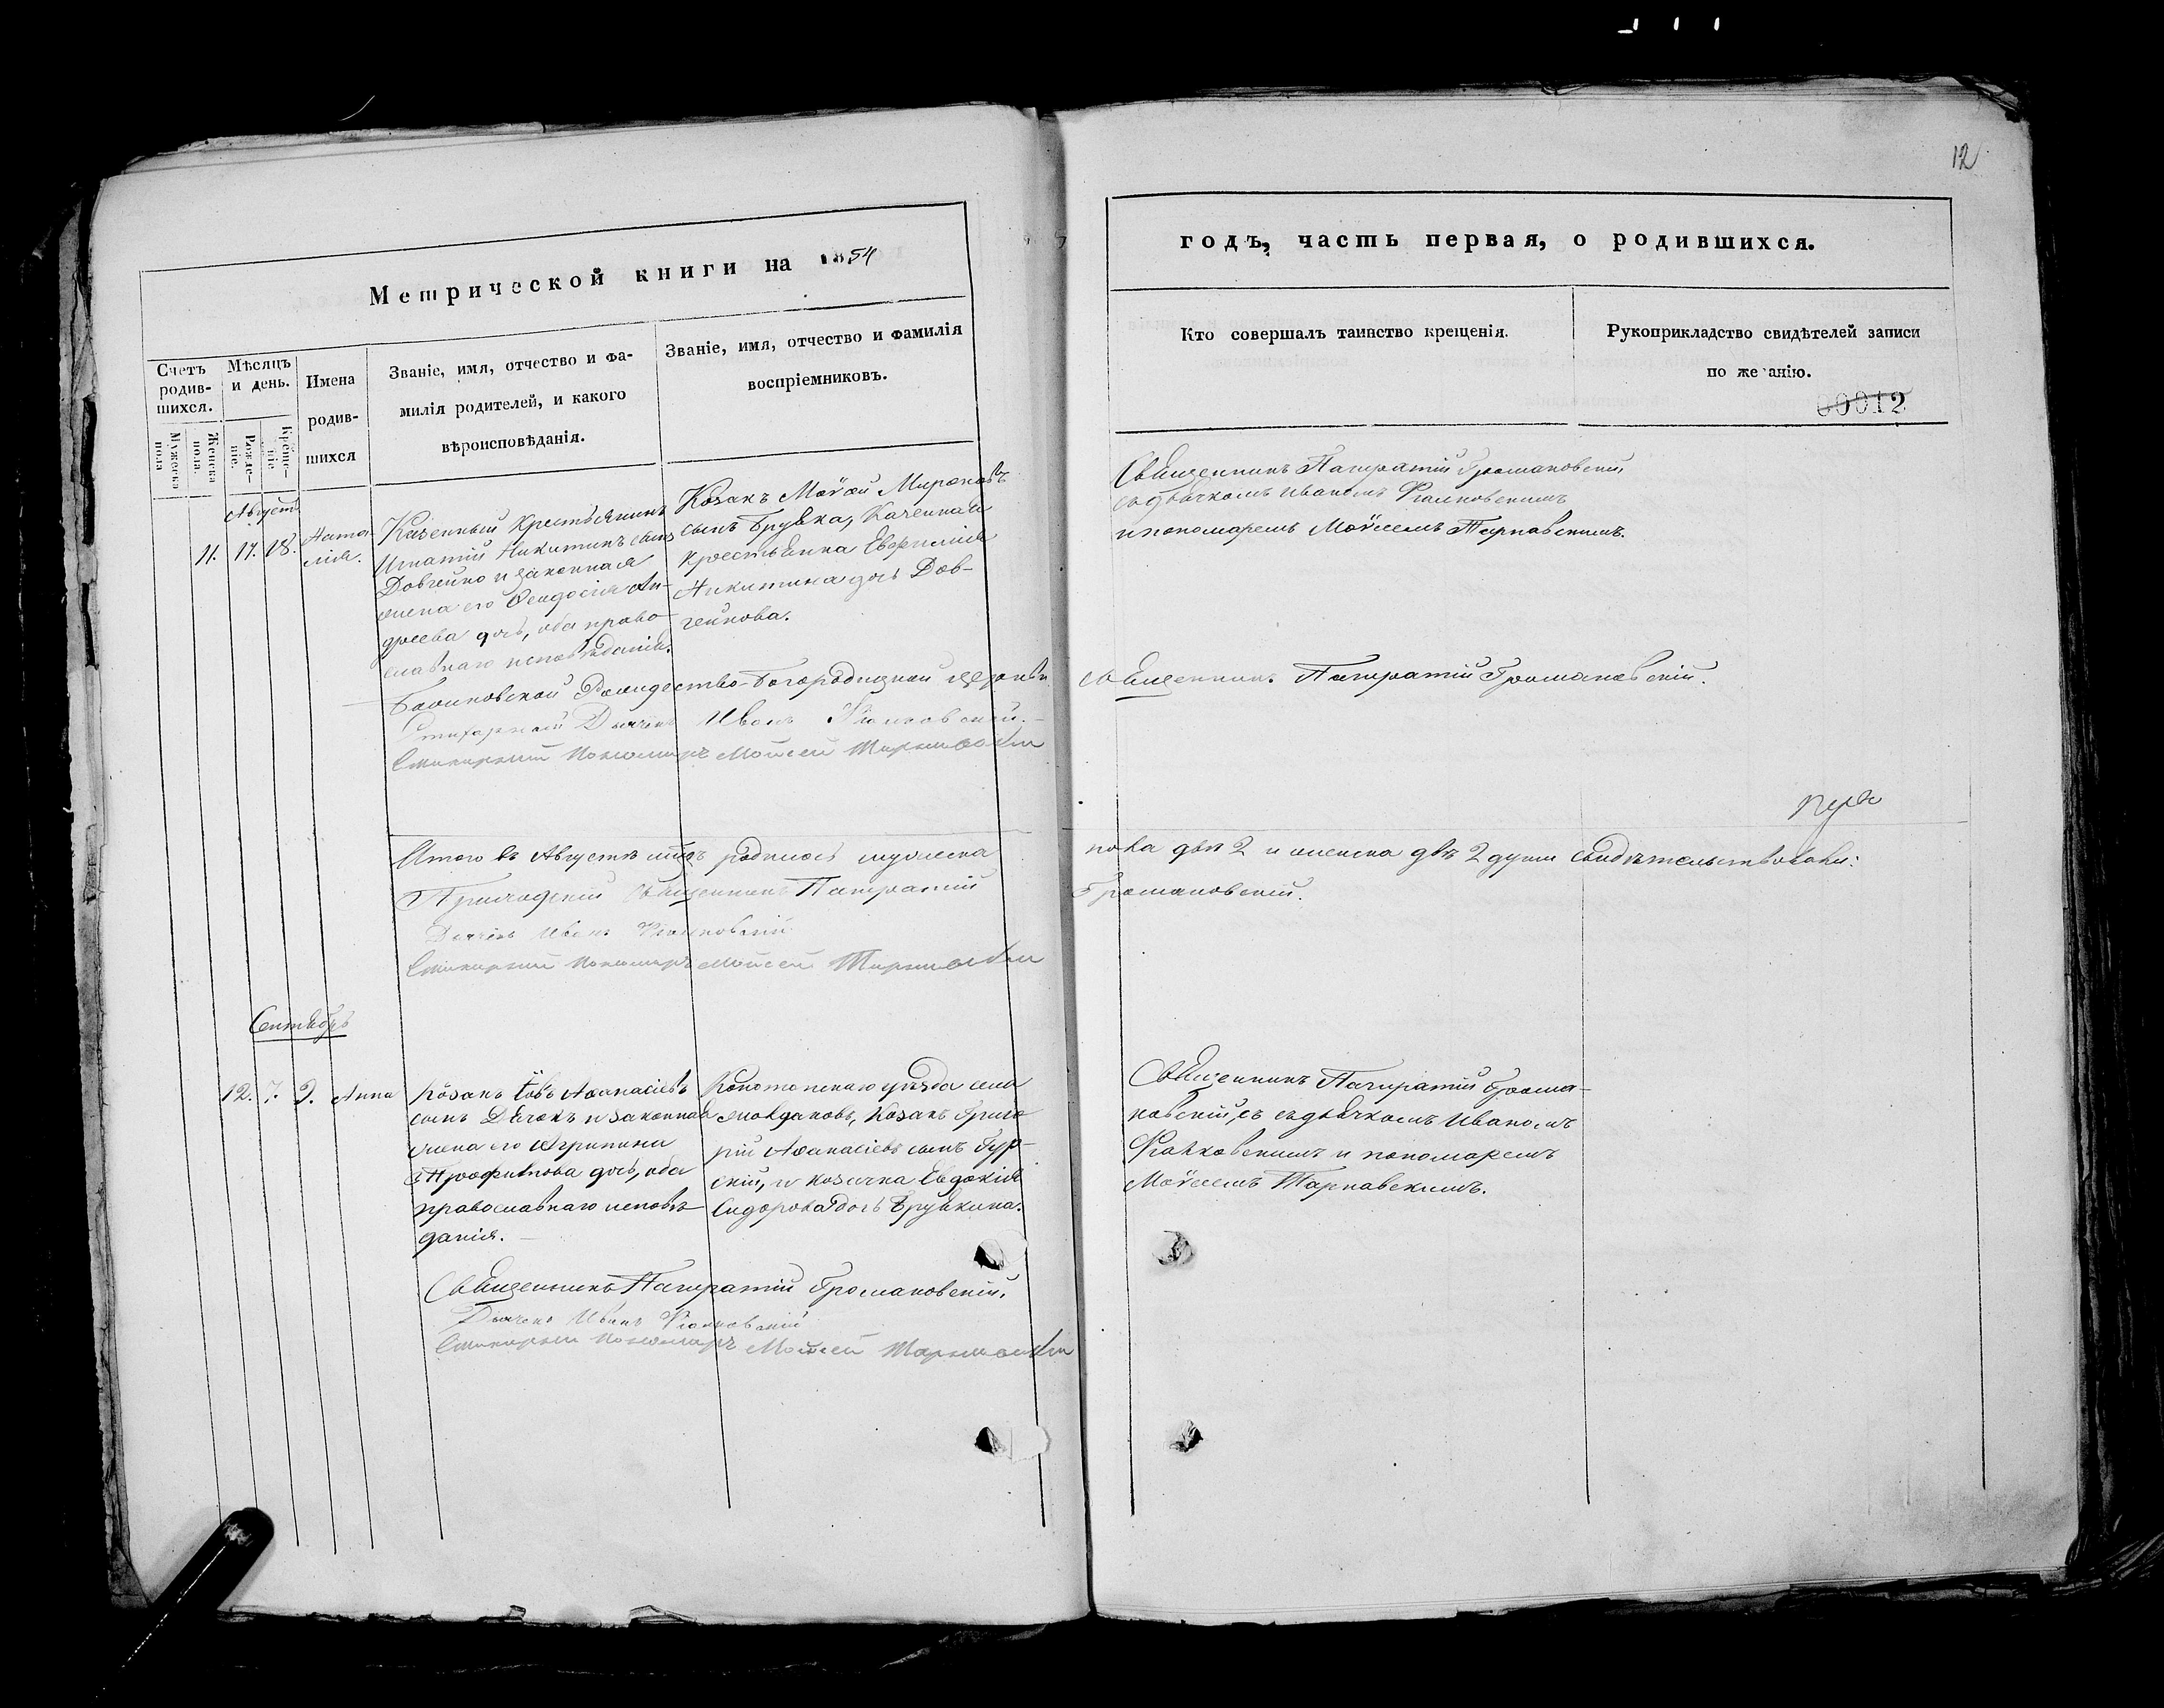 12
Метрической книги на 1854
годъ, часть первая, о родившихся.
Счетъ родив-
шихся.
Мужеска пола
Женска пола.
Мѣсяцъ и день.
Рожде-
ніе.
Креще-
ніе
Имена
родив-
шихся
Званіе, имя, отчество и фа-
милія родителей, и какого
вѣроисповѣданія.
Званіе, имя, отчество и фамилія
воспріемниковъ.
Кто совершалъ таинство крещенія.
Рукоприкладство свидѣтелей записи
по же анію.
00012
Августъ
11. 17. 18. Ната
лія.
Казенный Крестьянинъ
Игнатій Никитинъ сынъ
Довгейко и законная
жена его Ѳеодосія Ан-
дреева дочь, оба право-
славнаго исповѣданія.
Козакъ Моѵсей Мироновъ
сынъ Брувка, Казенная
крестьянка Евфимія
Никитина дочь Дов-
гейкова.
Священникъ Панкратій Громаковскій
съ дьячкомъ Иваномъ
и пономаремъ Моѵсеемъ Тарнавскимъ.
Рождество-Богородицкой церкви
священникъ Панкратій Громаковскій.
Стихарный Дьячекъ Иванъ
Стихарный Пономаръ Мойсей Тарнавскій
Итого въ Августѣ мцѣ родилось мужеска
пола двѣ 2 и женска двѣ 2 души свидѣтельствовали:
Приходскій Священникъ Панкратій
Громаковскій.
Дьячекъ Иванъ
Стихарный Пономаръ Мойсей Тарнавскій
Сентябрь
12. 7. 9. Анна
Козакъ Іовъ Аѳанасіевъ
сынъ Дѣчокъ и законная
жена его Агрипина
Трофимова дочь, оба
православнаго исповѣ-
данія.
Конотопскаго уѣзда села
козакъ Григо
рій Аѳанасіевъ сынъ Гур-
скій, и козачка Евдокія
Сидорова дочь Брувкина.
Священникъ Панкратій Грома-
ковскій, съ дьячкомъ Иваномъ
и пономаремъ
Моѵсеемъ Тарнавскимъ.
Священникъ Панкратій Громаковскій.
Дьячекъ Иванъ
Стихарный Пономаръ Мойсей Тарнавскій